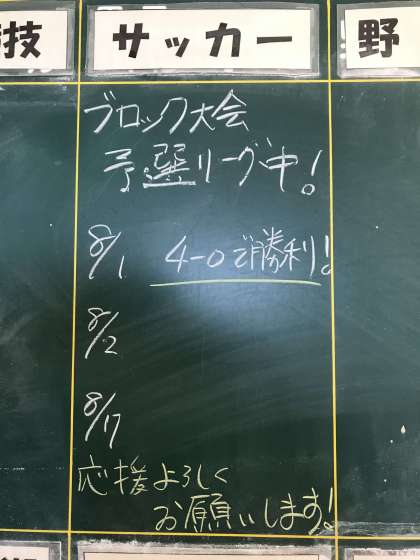 技
サッカー
野
ブロック大会
予選リーグ中!
8/1 4-0で勝利!
8/2
8/17
応援よろしく
お願いします!